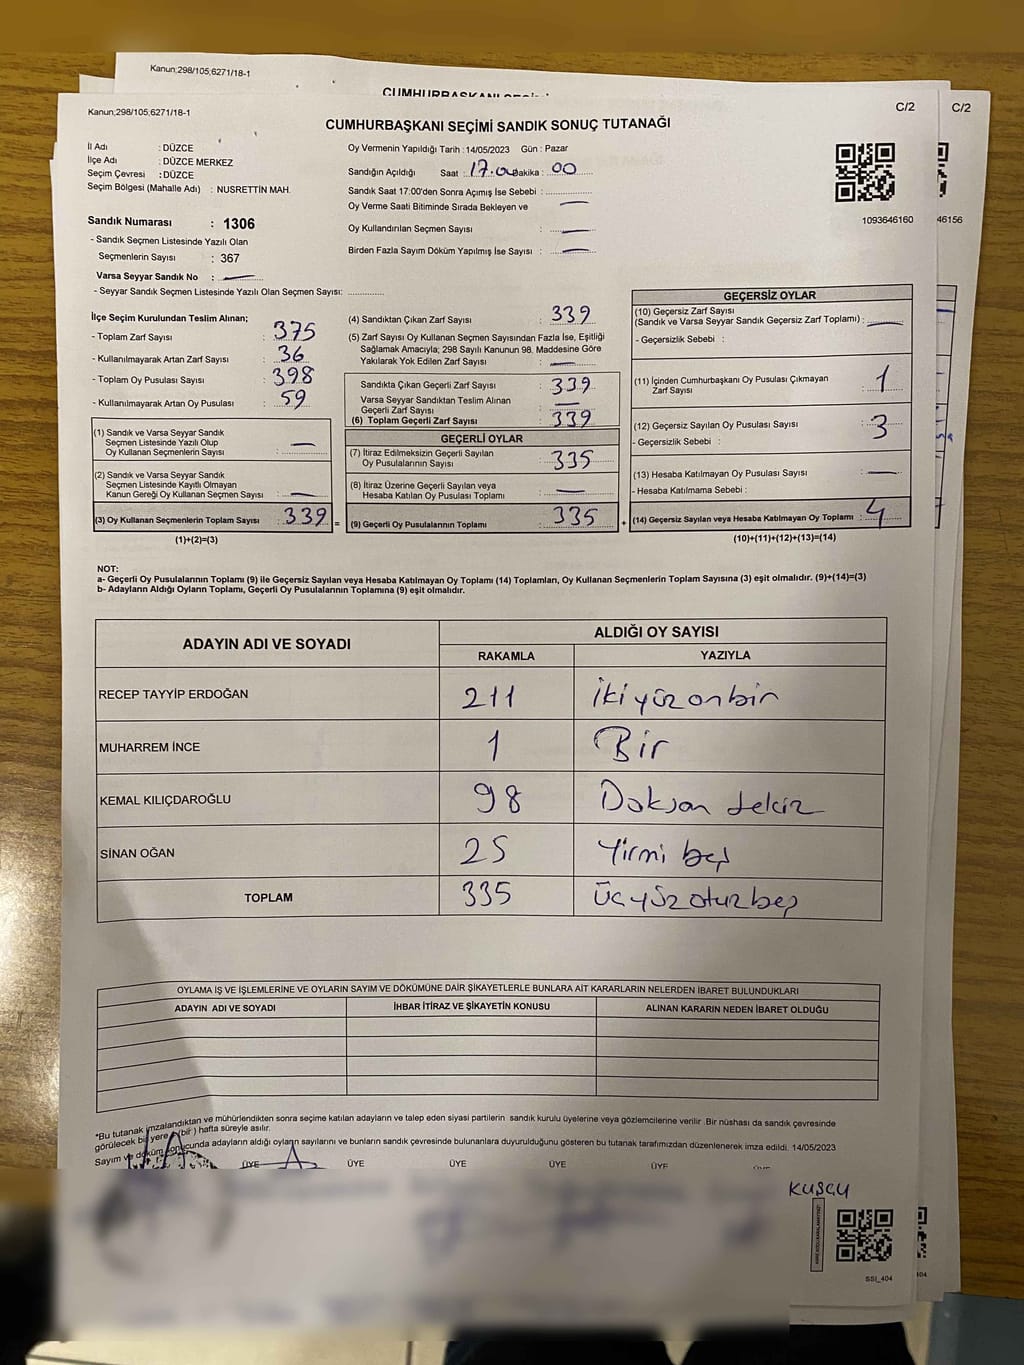 Kanun;298/105;6271/18-1
CUMHURBAŞKANI
C/2
Kanun;298/105;6271/18-1
C/2
CUMHURBAŞKANI SEÇİMİ SANDIK SONUÇ TUTANAĞI
İl Adı : DÜZCE
İlçe Adı : DÜZCE MERKEZ
Seçim Çevresi : DÜZCE
Seçim Bölgesi (Mahalle Adı) : NUSRETTİN MAH.
Sandık Numarası : 1306
- Sandık Seçmen Listesinde Yazılı Olan
Seçmenlerin Sayısı : 367
Varsa Seyyar Sandık No :
- Seyyar Sandık Seçmen Listesinde Yazılı Olan Seçmen Sayısı:
Oy Vermenin Yapıldığı Tarih : 14/05/2023 Gün : Pazar
Sandığın Açıldığı Saat : 17.00 Dakika : 00
Sandık Saat 17:00'den Sonra Açımış İse Sebebi :
Oy Verme Saati Bitiminde Sırada Bekleyen ve
Oy Kullandırılan Seçmen Sayısı :
Birden Fazla Sayım Döküm Yapılmış İse Sayısı :
1093646160
46156
İlçe Seçim Kurulundan Teslim Alınan;
- Toplam Zarf Sayısı : 375
- Kullanılmayarak Artan Zarf Sayısı : 36
- Toplam Oy Pusulası Sayısı : 398
- Kullanılmayarak Artan Oy Pusulası : 59
(1) Sandık ve Varsa Seyyar Sandık
Seçmen Listesinde Yazılı Olup
Oy Kullanan Seçmenlerin Sayısı :
(2) Sandık ve Varsa Seyyar Sandık
Seçmen Listesinde Kayıtlı Olmayan
Kanun Gereği Oy Kullanan Seçmen Sayısı :
(3) Oy Kullanan Seçmenlerin Toplam Sayısı : 339 =
(1)+(2)=(3)
(4) Sandıktan Çıkan Zarf Sayısı : 339
(5) Zarf Sayısı Oy Kullanan Seçmen Sayısından Fazla İse, Eşitliği
Sağlamak Amacıyla; 298 Sayılı Kanunun 98. Maddesine Göre
Yakılarak Yok Edilen Zarf Sayısı :
Sandıkta Çıkan Geçerli Zarf Sayısı : 339
Varsa Seyyar Sandıktan Teslim Alınan
Geçerli Zarf Sayısı :
(6) Toplam Geçerli Zarf Sayısı : 339
GEÇERLİ OYLAR
(7) İtiraz Edilmeksizin Geçerli Sayılan
Oy Pusulalarının Sayısı : 335
(8) İtiraz Üzerine Geçerli Sayılan veya
Hesaba Katılan Oy Pusulası Toplamı :
(9) Geçerli Oy Pusulalarının Toplamı : 335 +
GEÇERSİZ OYLAR
(10) Geçersiz Zarf Sayısı
(Sandık ve Varsa Seyyar Sandık Geçersiz Zarf Toplamı) :
- Geçersizlik Sebebi :
(11) İçinden Cumhurbaşkanı Oy Pusulası Çıkmayan
Zarf Sayısı : 1
(12) Geçersiz Sayılan Oy Pusulası Sayısı : 3
- Geçersizlik Sebebi :
(13) Hesaba Katılmayan Oy Pusulası Sayısı :
- Hesaba Katılmama Sebebi :
(14) Geçersiz Sayılan veya Hesaba Katılmayan Oy Toplamı : 4
(10)+(11)+(12)+(13)=(14)
NOT:
a- Geçerli Oy Pusulalarının Toplamı (9) ile Geçersiz Sayılan veya Hesaba Katılmayan Oy Toplamı (14) Toplamları, Oy Kullanan Seçmenlerin Toplam Sayısına (3) eşit olmalıdır. (9)+(14)=(3)
b- Adayların Aldığı Oyların Toplamı, Geçerli Oy Pusulalarının Toplamına (9) eşit olmalıdır.
ADAYIN ADI VE SOYADI
ALDIĞI OY SAYISI
RAKAMLA YAZIYLA
RECEP TAYYİP ERDOĞAN 211 İkiyüzonbir
MUHARREM İNCE 1 Bir
KEMAL KILIÇDAROĞLU 98 Doksan sekiz
SİNAN OĞAN 25 Yirmi beş
TOPLAM 335 Üçyüzotuzbeş
OYLAMA İŞ VE İŞLEMLERİNE VE OYLARIN SAYIM VE DÖKÜMÜNE DAİR ŞİKAYETLERLE BUNLARA AİT KARARLARIN NELERDEN İBARET BULUNDUKLARI
ADAYIN ADI VE SOYADI İHBAR İTİRAZ VE ŞİKAYETİN KONUSU ALINAN KARARIN NEDEN İBARET OLDUĞU
*Bu tutanak imzalandıktan ve mühürlendikten sonra seçime katılan adayların ve talep eden siyasi partilerin sandık kurulu üyelerine veya gözlemcilerine verilir .Bir nüshası da sandık çevresinde
görülecek bir yere (bir ) hafta süreyle asılır.
Sayım ve döküm sonucunda adayların aldığı oyların sayılarını ve bunların sandık çevresinde bulunanlara duyurulduğunu gösteren bu tutanak tarafımızdan düzenlenerek imza edildi. 14/05/2023
ÜYE ÜYE ÜYE ÜYE ÜYE ÜYE
KUŞÇU
SSİ_404
404